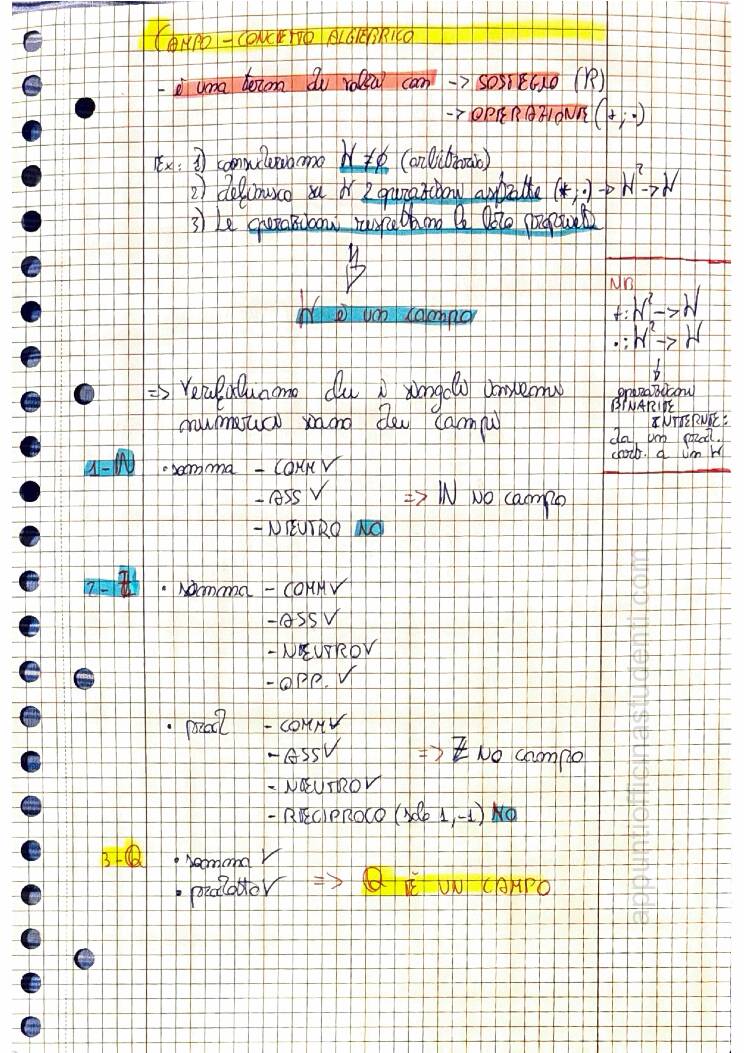 CAMPO - CONCETTO ALGEBRICO
- è una terna de valori con -> SOSTEGNO (R)
-> OPERAZIONE (+ ; ·)
Ex: 1) consideriamo W ≠ ∅ (arbitrario)
2) definisco su W 2 operazioni astratte (* ; ·) -> W² -> W
3) Le operazioni rispettano le loro proprietà
W è un campo
NB
+: W² -> W
·: W² -> W
operazioni
BINARIE
INTERNE:
da un prod.
cart. a un W
=> Verifichiamo che i singoli insiemi
numerici siano dei campi
1 - N · somma - COMM ✓
- ASS ✓ => IN NO campo
- NEUTRO NO
2 - Z · somma - COMM ✓
- ASS ✓
- NEUTRO ✓
- OPP. ✓
· prod - COMM ✓
- ASS ✓ => Z NO campo
- NEUTRO ✓
- RECIPROCO (solo 1, -1) NO
3 - Q · somma ✓
· prodotto ✓ => Q È UN CAMPO
appuntiofficinastudenti.com